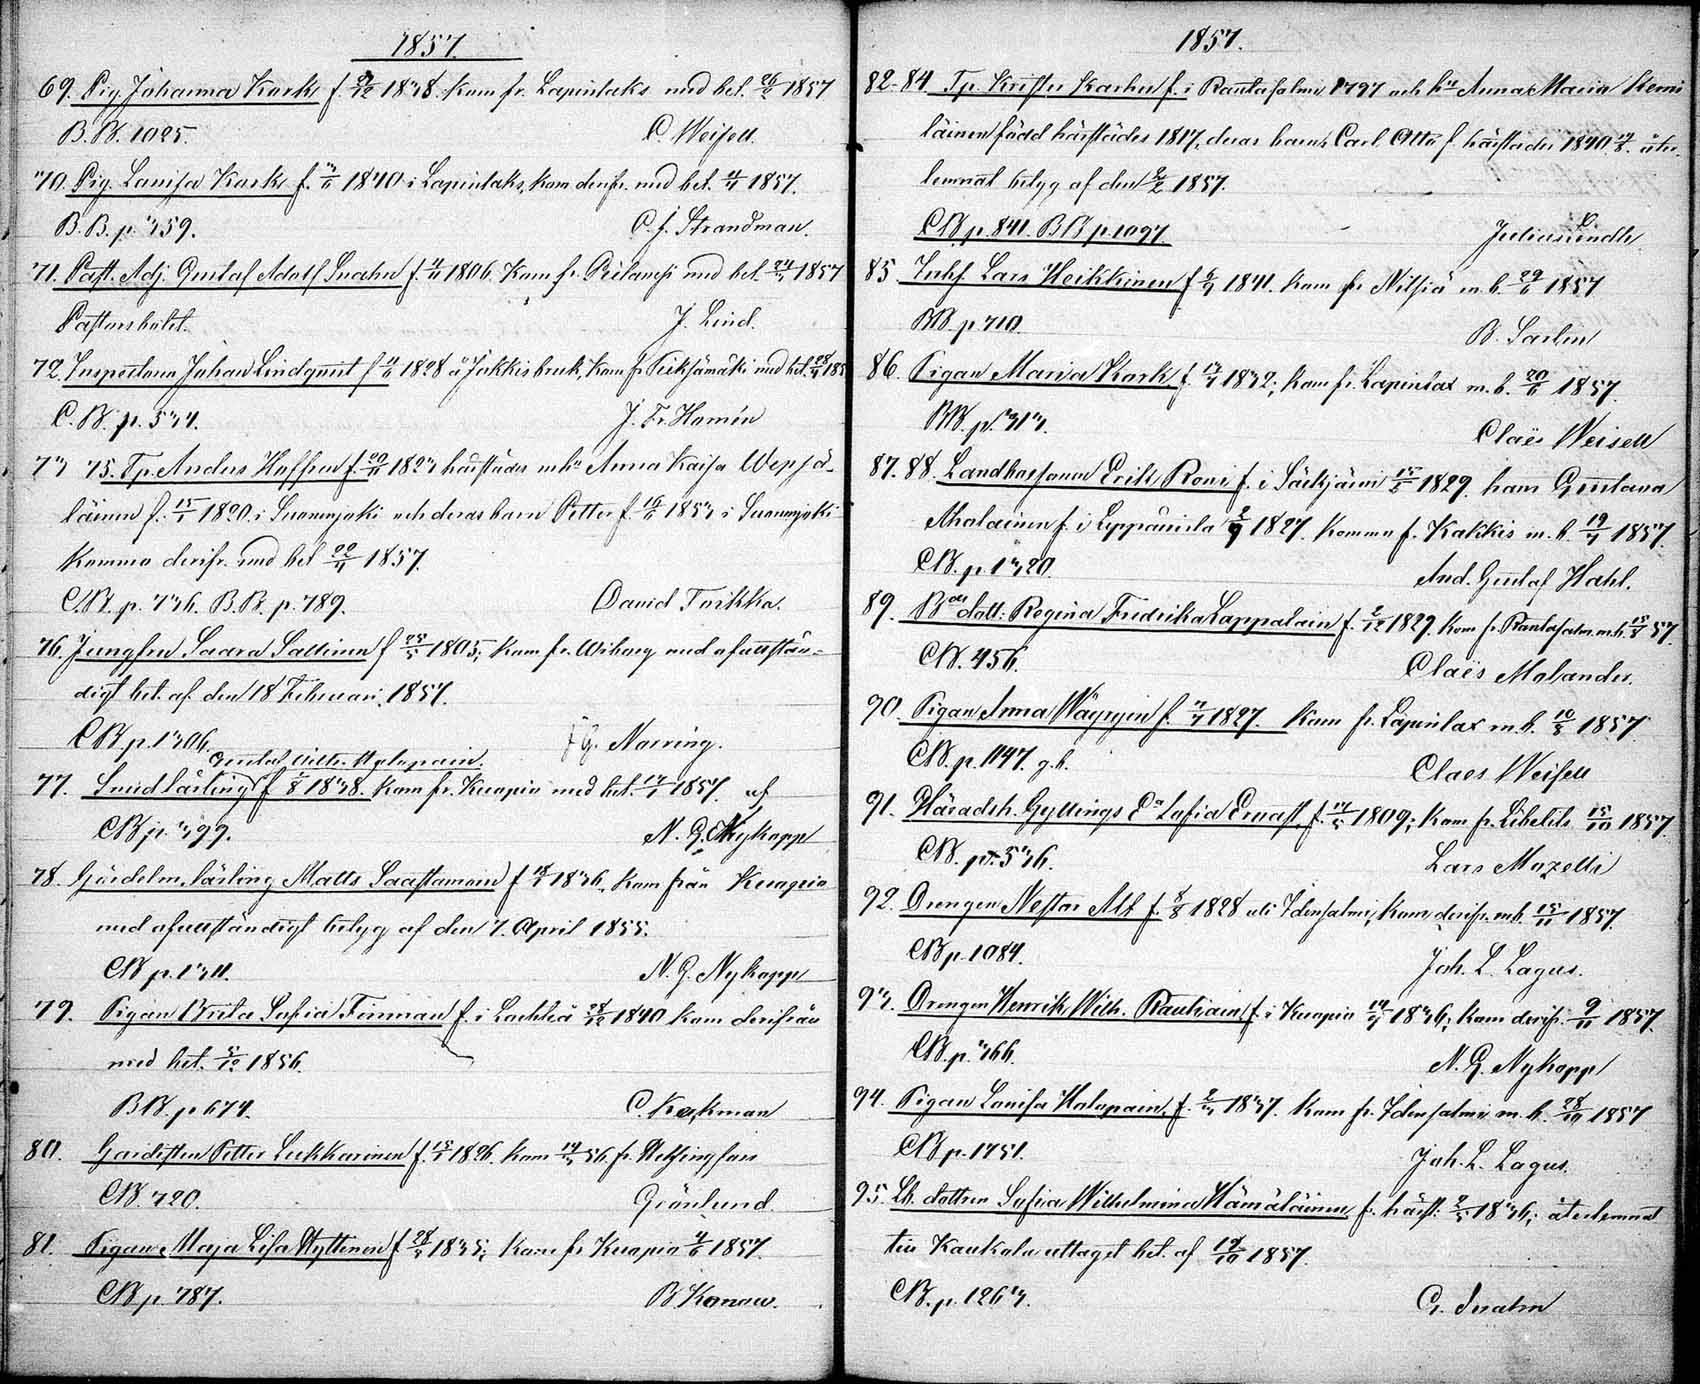 1857.
69. Pig. Johanna Kork f. 2/12 1838. Kom fr. Lapinlaks med bet. 26/2 1857
B.B. 1025. C. Weisell.
70. Pig. Lovisa Kork f. 1840 i Lapinlaks, kom derifr. med bet. 1857.
B.B. p. 359. C. J. Strandman.
71. Past. Adj. Gustaf Adolf Snahn f. 1806. Kom fr. med bet. 24/3 1857
Pastorsbolet. J. Lind.
72. Inspectoren Johan Lindqvist f. 1828 å Jokkis bruk, Kom fr Pieksämäki med bet. 28/4 185
C.B. p. 534. J. Fr. Homén
73 75. Tp. Anders Hoffren f. 20/11 1823 härstädes m hu Anna Kaisa Wepsä-
läinen f. 15/1 1820 i Suonenjoki och deras barn Petter f. 16/6 1853 i Suonenjoki
Komma derifr. med bet 1857.
CB. p. 736. B.B. p. 789. David Toikka.
76. Jungfru Saara Sallinen f 25/5 1805; kom fr. Wiborg med ofullstän-
digt bet. af den 18 Februari 1857.
CB p. 1306. G. Norring.
77. Smedlärling f 1/8 1838. Kom fr. Kuopio med bet. 1857. af
CB p. 399. N. G. Nykopp
78. Gördelm. lärling Matts Saastamoin f 1836, kom från Kuopio
med ofullständigt betyg af den 7. April 1855.
CB p. 1311. N. G. Nykopp
79. Pigan Brita Sofia Finman f. i 28/12 1840 kom derifrån
med bet. 5/10 1856.
BB. p 674. C. Kockman
80. Gardisten Petter Lukkarinen f. 15/1 1826. kom 56 fr. Helsingfors
CB. 720. Grönlund
81. Pigan Maja Lisa Hyttinen f 28/5 1835; Kom fr Kuopio 4/6 1857.
CB p. 787. B. Konow.
1857.
82-84 Tp. Krister Karhu f. i Rantasalmi 1797 och hu Anna Maria Kemi
läinen född härstädes 1817, deras barn Carl Otto f. härstädes 1840 åter-
lemnat betyg af den 2/2 1857.
CB p. 841. BB p. 1097.
85. Inhs. Lars Heikkinen f. 6/7 1841. kom fr Nilsiä m. b. 29/6 1857
BB p. 710. B. Sarlin
86. Pigan Maria Kork f. 1832; Kom fr. Lapinlax m. b. 20/6 1857.
BB. p. 313. Claës Weisell
87. 88. Landbossonen Erik Roni f. i Säikjärvi 15/5 1829. hans Gustava
Aholainen f. i Leppävirta 1827. Komma f. Kakkis m. b. 19/7 1857.
CB. p. 1320. And. Gustaf Hahl.
89. Bdes dott: Regina Fredrika Lappalain f. 2/12 1829. kom fr. Rantasalm. m. b. 15/8 57.
CB. 456. Claës Molander.
90. Pigan Anna Wäyrynen f. 1827. Kom fr. Lapinlax m. b. 10/8 1857
CB. p. 1147. g. b. Claes Weisell
91. Häradsh. Gyllings Ea Sofia Ernast, f. 1809; Kom fr. Libelits 15/10 1857
CB. p. 536. Lars Mozelli
92. Drengen Nestor Alf f. 8/8 1828 uti Idensalmi, Kom derifr. m. b. 15/11 1857.
CB p. 1084. Joh. L. Lagus.
93. Drengen Henrik Wilh. Rautiain f. i Kuopio 1836; Kom derifr. 9/11 1857.
CB. p. 366. N. G. Nykopp
94. Pigan Lovisa Holopain, f. 2/3 1837. Kom fr. Idensalmi m. b. 28/10 1857
CB p. 1751. Joh. L. Lagus.
95. Lb. dottren Sofia Wilhelmina Hämäläinen f. härst: 1836; återlemnat
till Kaukola uttaget bet. af 12/10 1857.
CB. p. 1263. G. Snahn